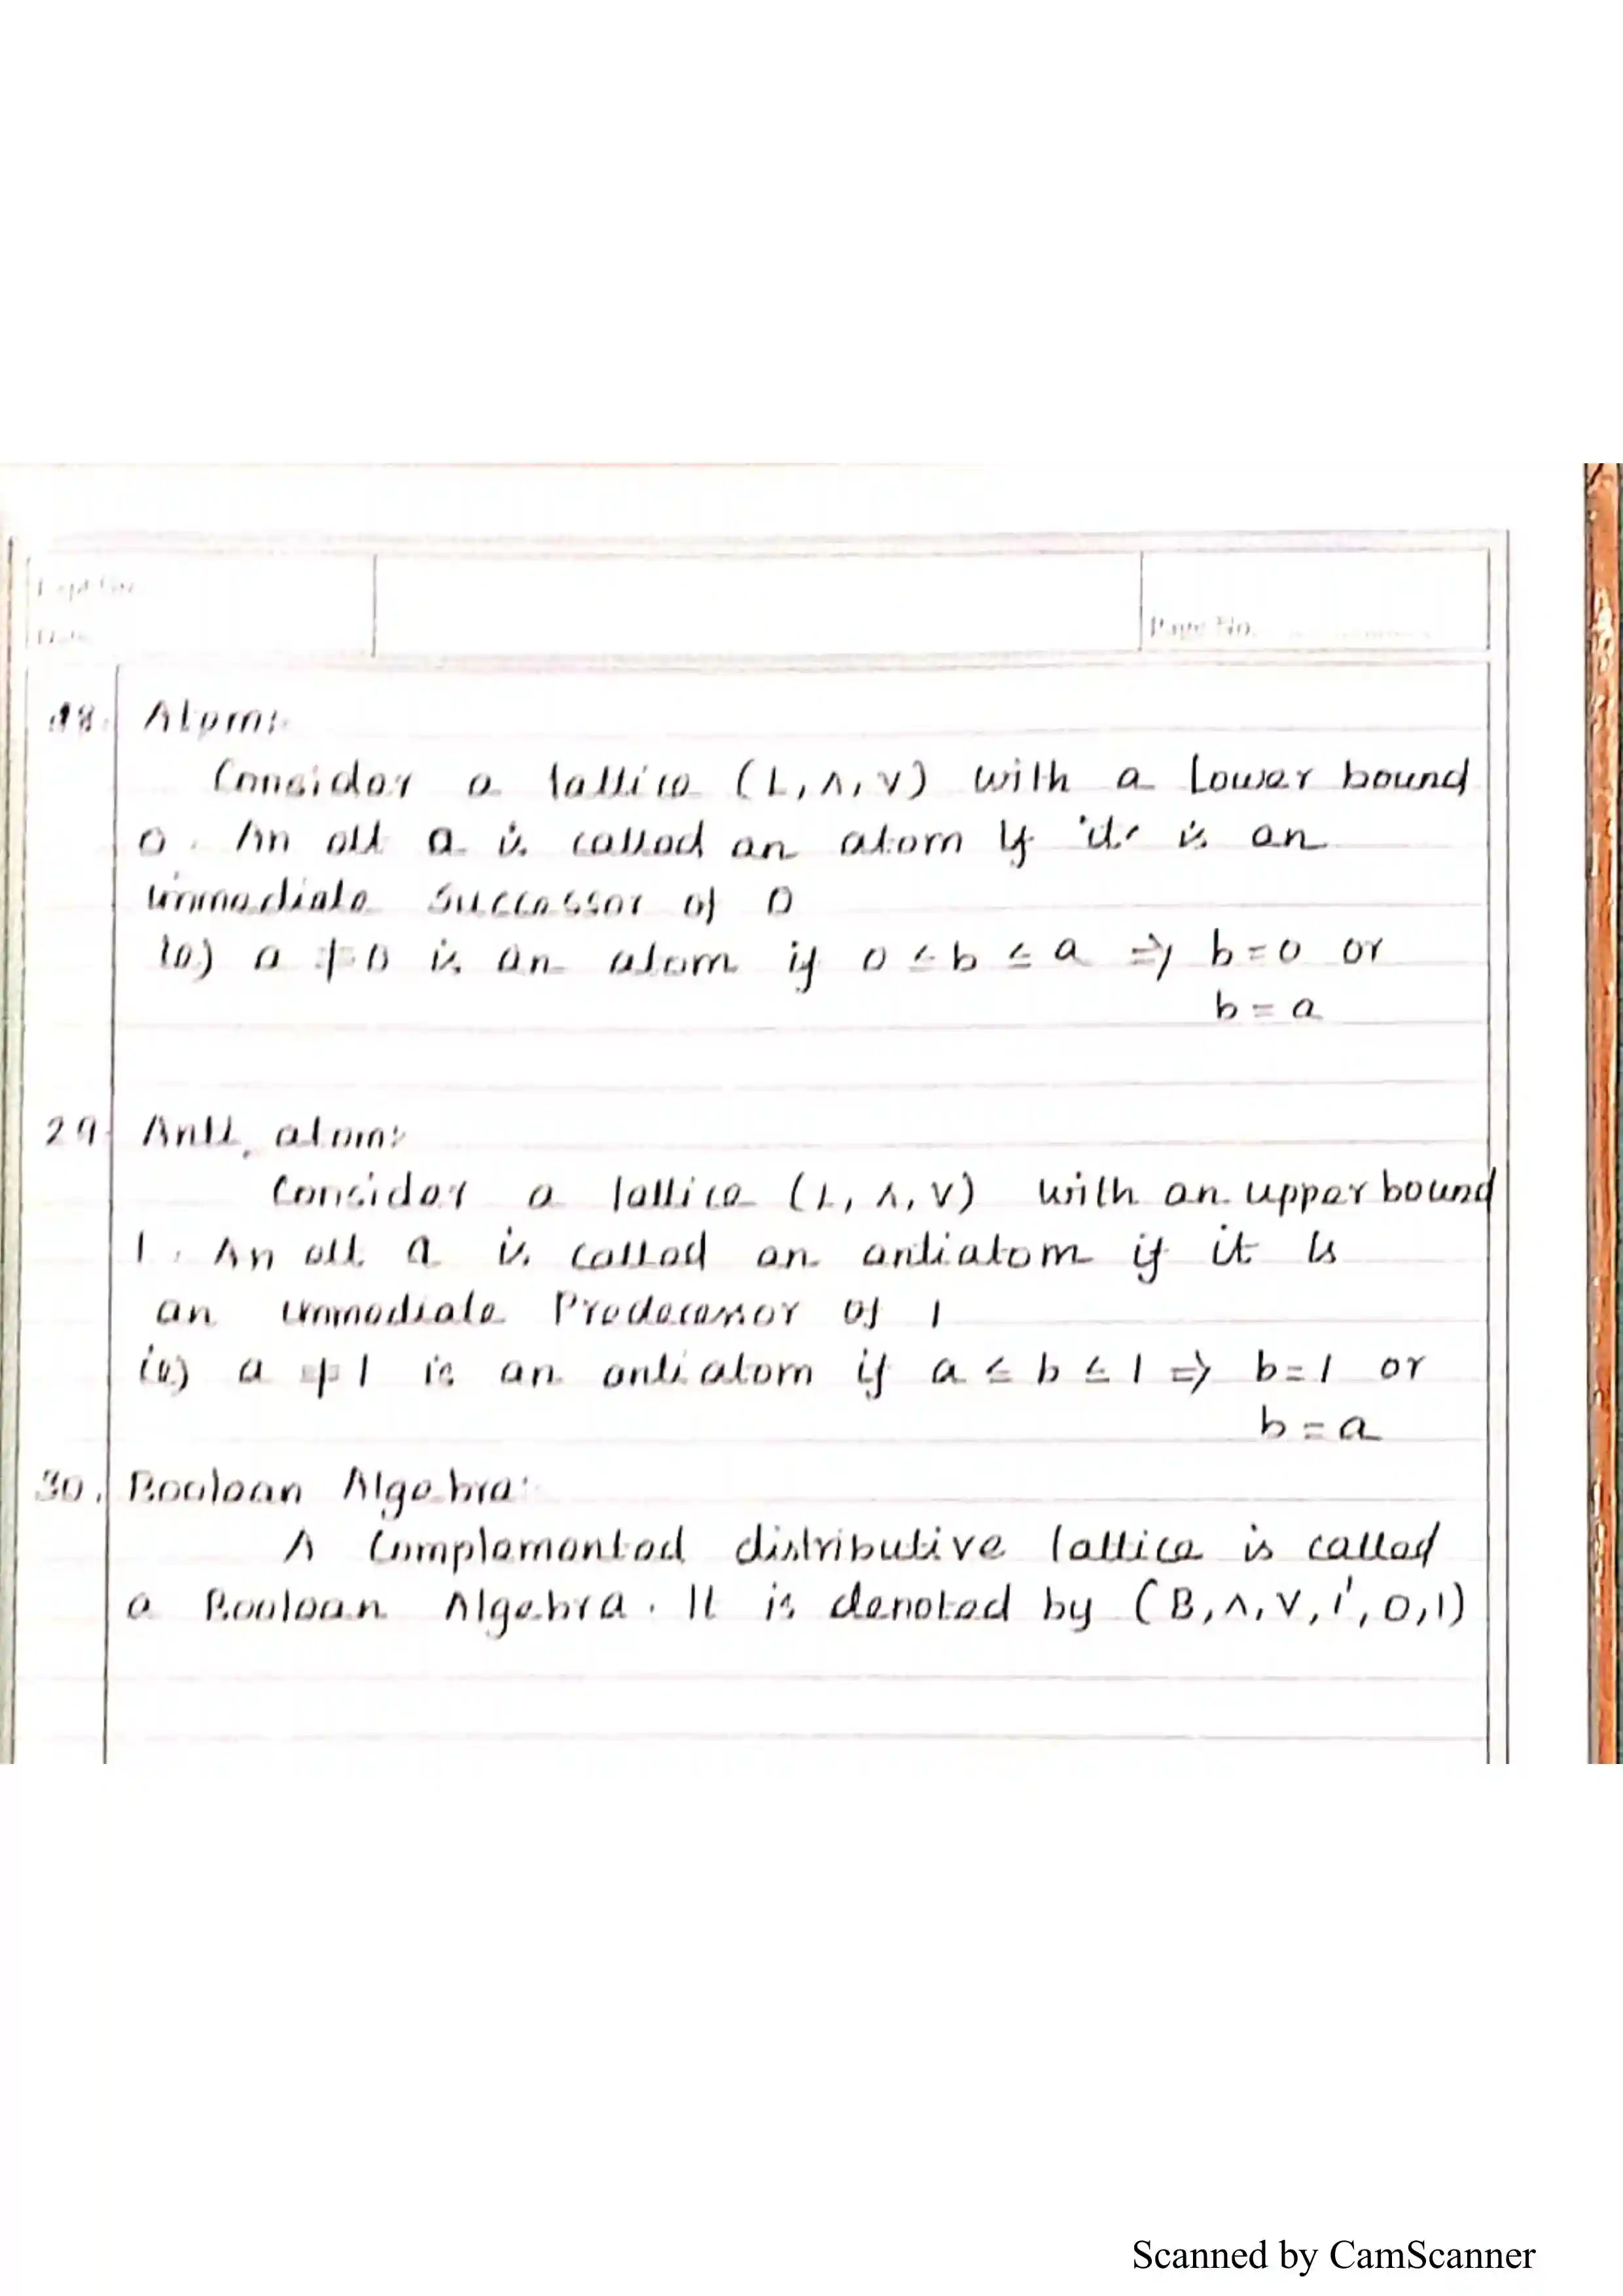 Expt No.
Date
Page No.
28. Atom:-
Consider a lattice (L, ∧, ∨) with a Lower bound
0. An elt a is called an atom if it is an
immediate Successor of 0
(ie) a ≠ 0 is an atom if 0 ≤ b ≤ a ⇒ b = 0 or
b = a
29. Anti atom:-
Consider a lattice (L, ∧, ∨) with an upper bound
1. An elt a is called an antiatom if it is
an immediate Predecessor of 1
(ie) a ≠ 1 is an anti atom if a ≤ b ≤ 1 ⇒ b = 1 or
b = a
30. Boolean Algebra:
A Complemented distributive lattice is called
a Boolean Algebra. It is denoted by (B, ∧, ∨, 1', 0, 1)
Scanned by CamScanner